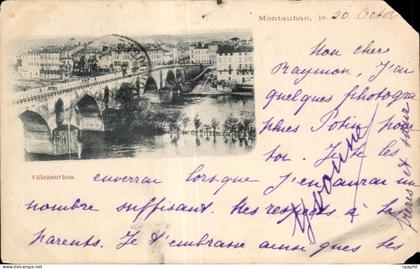 Montauban, le 20 Octo
Mon cher
Raymon, J'ai
quelques photogra
phies Potin pour
toi. Je te les
Villebourbon.
enverrai lorsque j'en aurai un
nombre suffisant. Mes respects à tes
parents. Je t'embrasse ainsi que tes
frères et
Yvonne